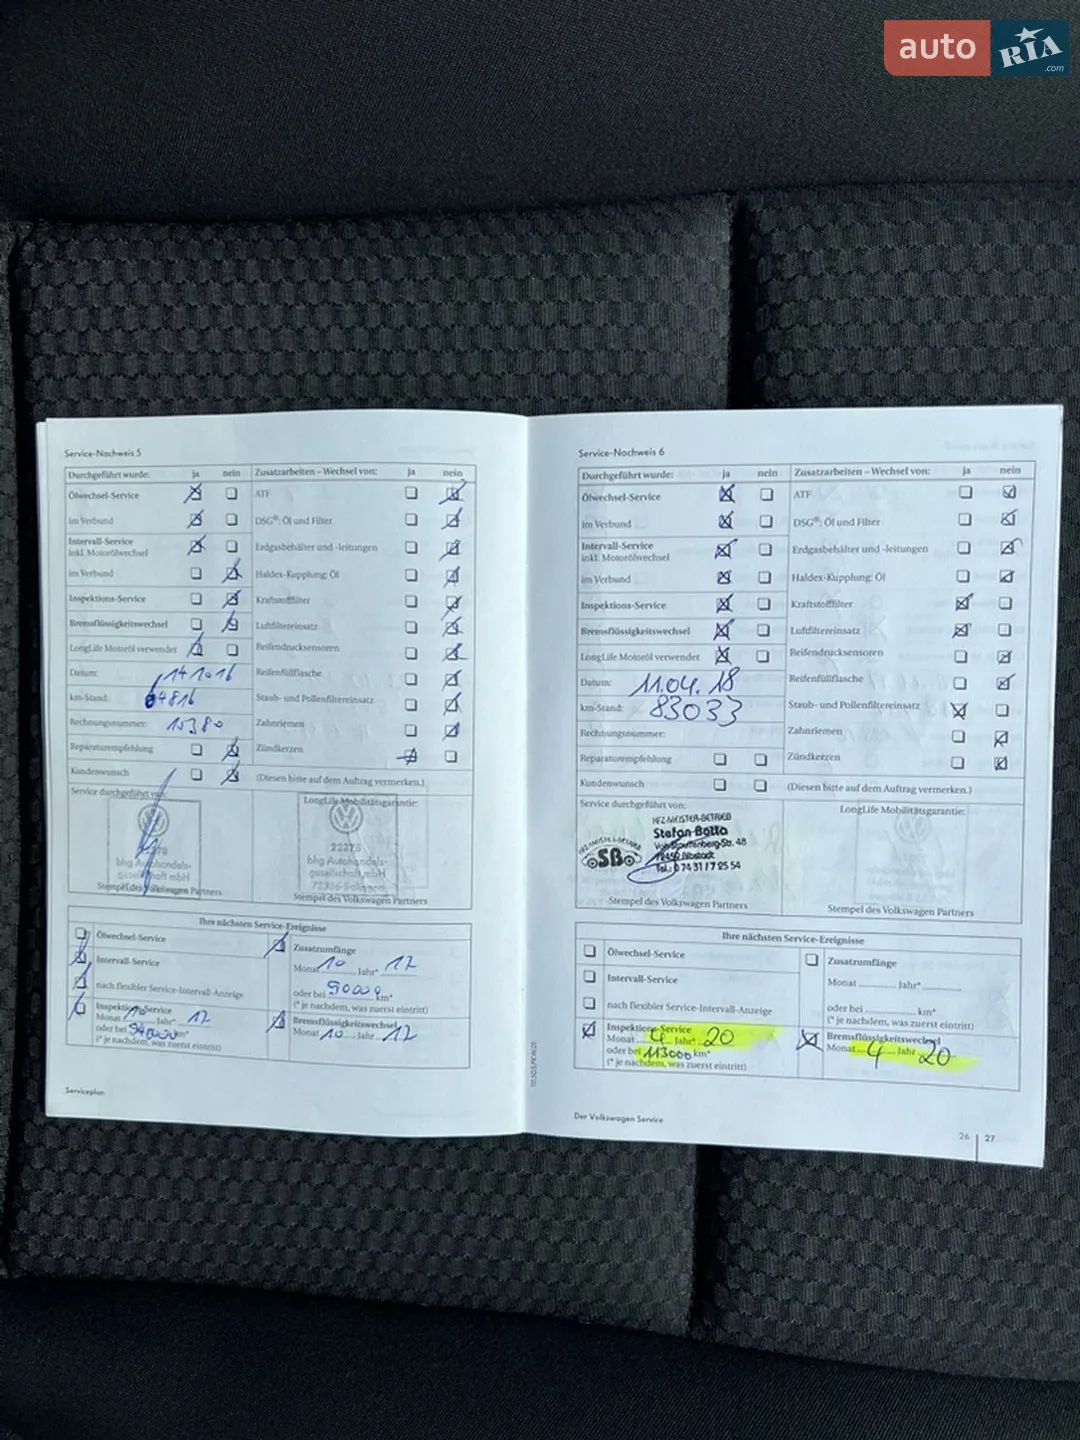 auto RIA.com
Service-Nachweis 5
Durchgeführt wurde: ja nein Zusatzarbeiten – Wechsel von: ja nein
Ölwechsel-Service ATF
im Verbund DSG®: Öl und Filter
Intervall-Service Erdgasbehälter und -leitungen
inkl. Motorölwechsel
im Verbund Haldex-Kupplung: Öl
Inspektions-Service Kraftstofffilter
Bremsflüssigkeitswechsel Luftfiltereinsatz
LongLife Motoröl verwendet Reifendrucksensoren
Datum: 14 10 16 Reifenfüllflasche
km-Stand: 64816 Staub- und Pollenfiltereinsatz
Rechnungsnummer: 15380 Zahnriemen
Reparaturempfehlung Zündkerzen
Kundenwunsch (Diesen bitte auf dem Auftrag vermerken.)
Service durchgeführt von: LongLife Mobilitätsgarantie:
22378
bhg Autohandels-
gesellschaft mbH
Stempel des Volkswagen Partners Stempel des Volkswagen Partners
Ihre nächsten Service-Ereignisse
Ölwechsel-Service Zusatzumfänge
Intervall-Service Monat 10 Jahr* 17
nach flexibler Service-Intervall-Anzeige oder bei 90000 km*
(* je nachdem, was zuerst eintritt)
Inspektions-Service Bremsflüssigkeitswechsel
Monat 10 Jahr* 17 Monat 10 Jahr 17
oder bei 94000 km*
(* je nachdem, was zuerst eintritt)
Serviceplan
Service-Nachweis 6
Durchgeführt wurde: ja nein Zusatzarbeiten – Wechsel von: ja nein
Ölwechsel-Service ATF
im Verbund DSG®: Öl und Filter
Intervall-Service Erdgasbehälter und -leitungen
inkl. Motorölwechsel
im Verbund Haldex-Kupplung: Öl
Inspektions-Service Kraftstofffilter
Bremsflüssigkeitswechsel Luftfiltereinsatz
LongLife Motoröl verwendet Reifendrucksensoren
Datum: 11.04.18 Reifenfüllflasche
km-Stand: 83033 Staub- und Pollenfiltereinsatz
Rechnungsnummer: Zahnriemen
Reparaturempfehlung Zündkerzen
Kundenwunsch (Diesen bitte auf dem Auftrag vermerken.)
Service durchgeführt von: LongLife Mobilitätsgarantie:
KFZ-MEISTER-BETRIEB
Stefan Botta
SB
Tel.: 0 74 31 / 7 25 54
Stempel des Volkswagen Partners Stempel des Volkswagen Partners
Ihre nächsten Service-Ereignisse
Ölwechsel-Service Zusatzumfänge
Intervall-Service Monat Jahr*
nach flexibler Service-Intervall-Anzeige oder bei km*
(* je nachdem, was zuerst eintritt)
Inspektions-Service Bremsflüssigkeitswechsel
Monat 4 Jahr* 20 Monat 4 Jahr 20
oder bei 113000 km*
(* je nachdem, was zuerst eintritt)
Der Volkswagen Service
26 | 27